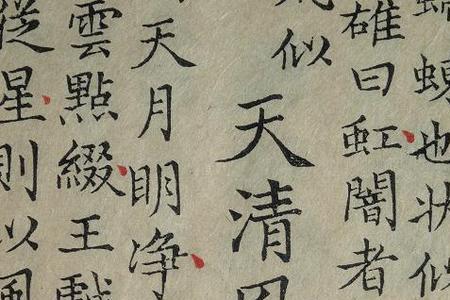 蜺也狀似
雄曰虹闇者
似
天清
天月明净
雲點綴王
從星則以風